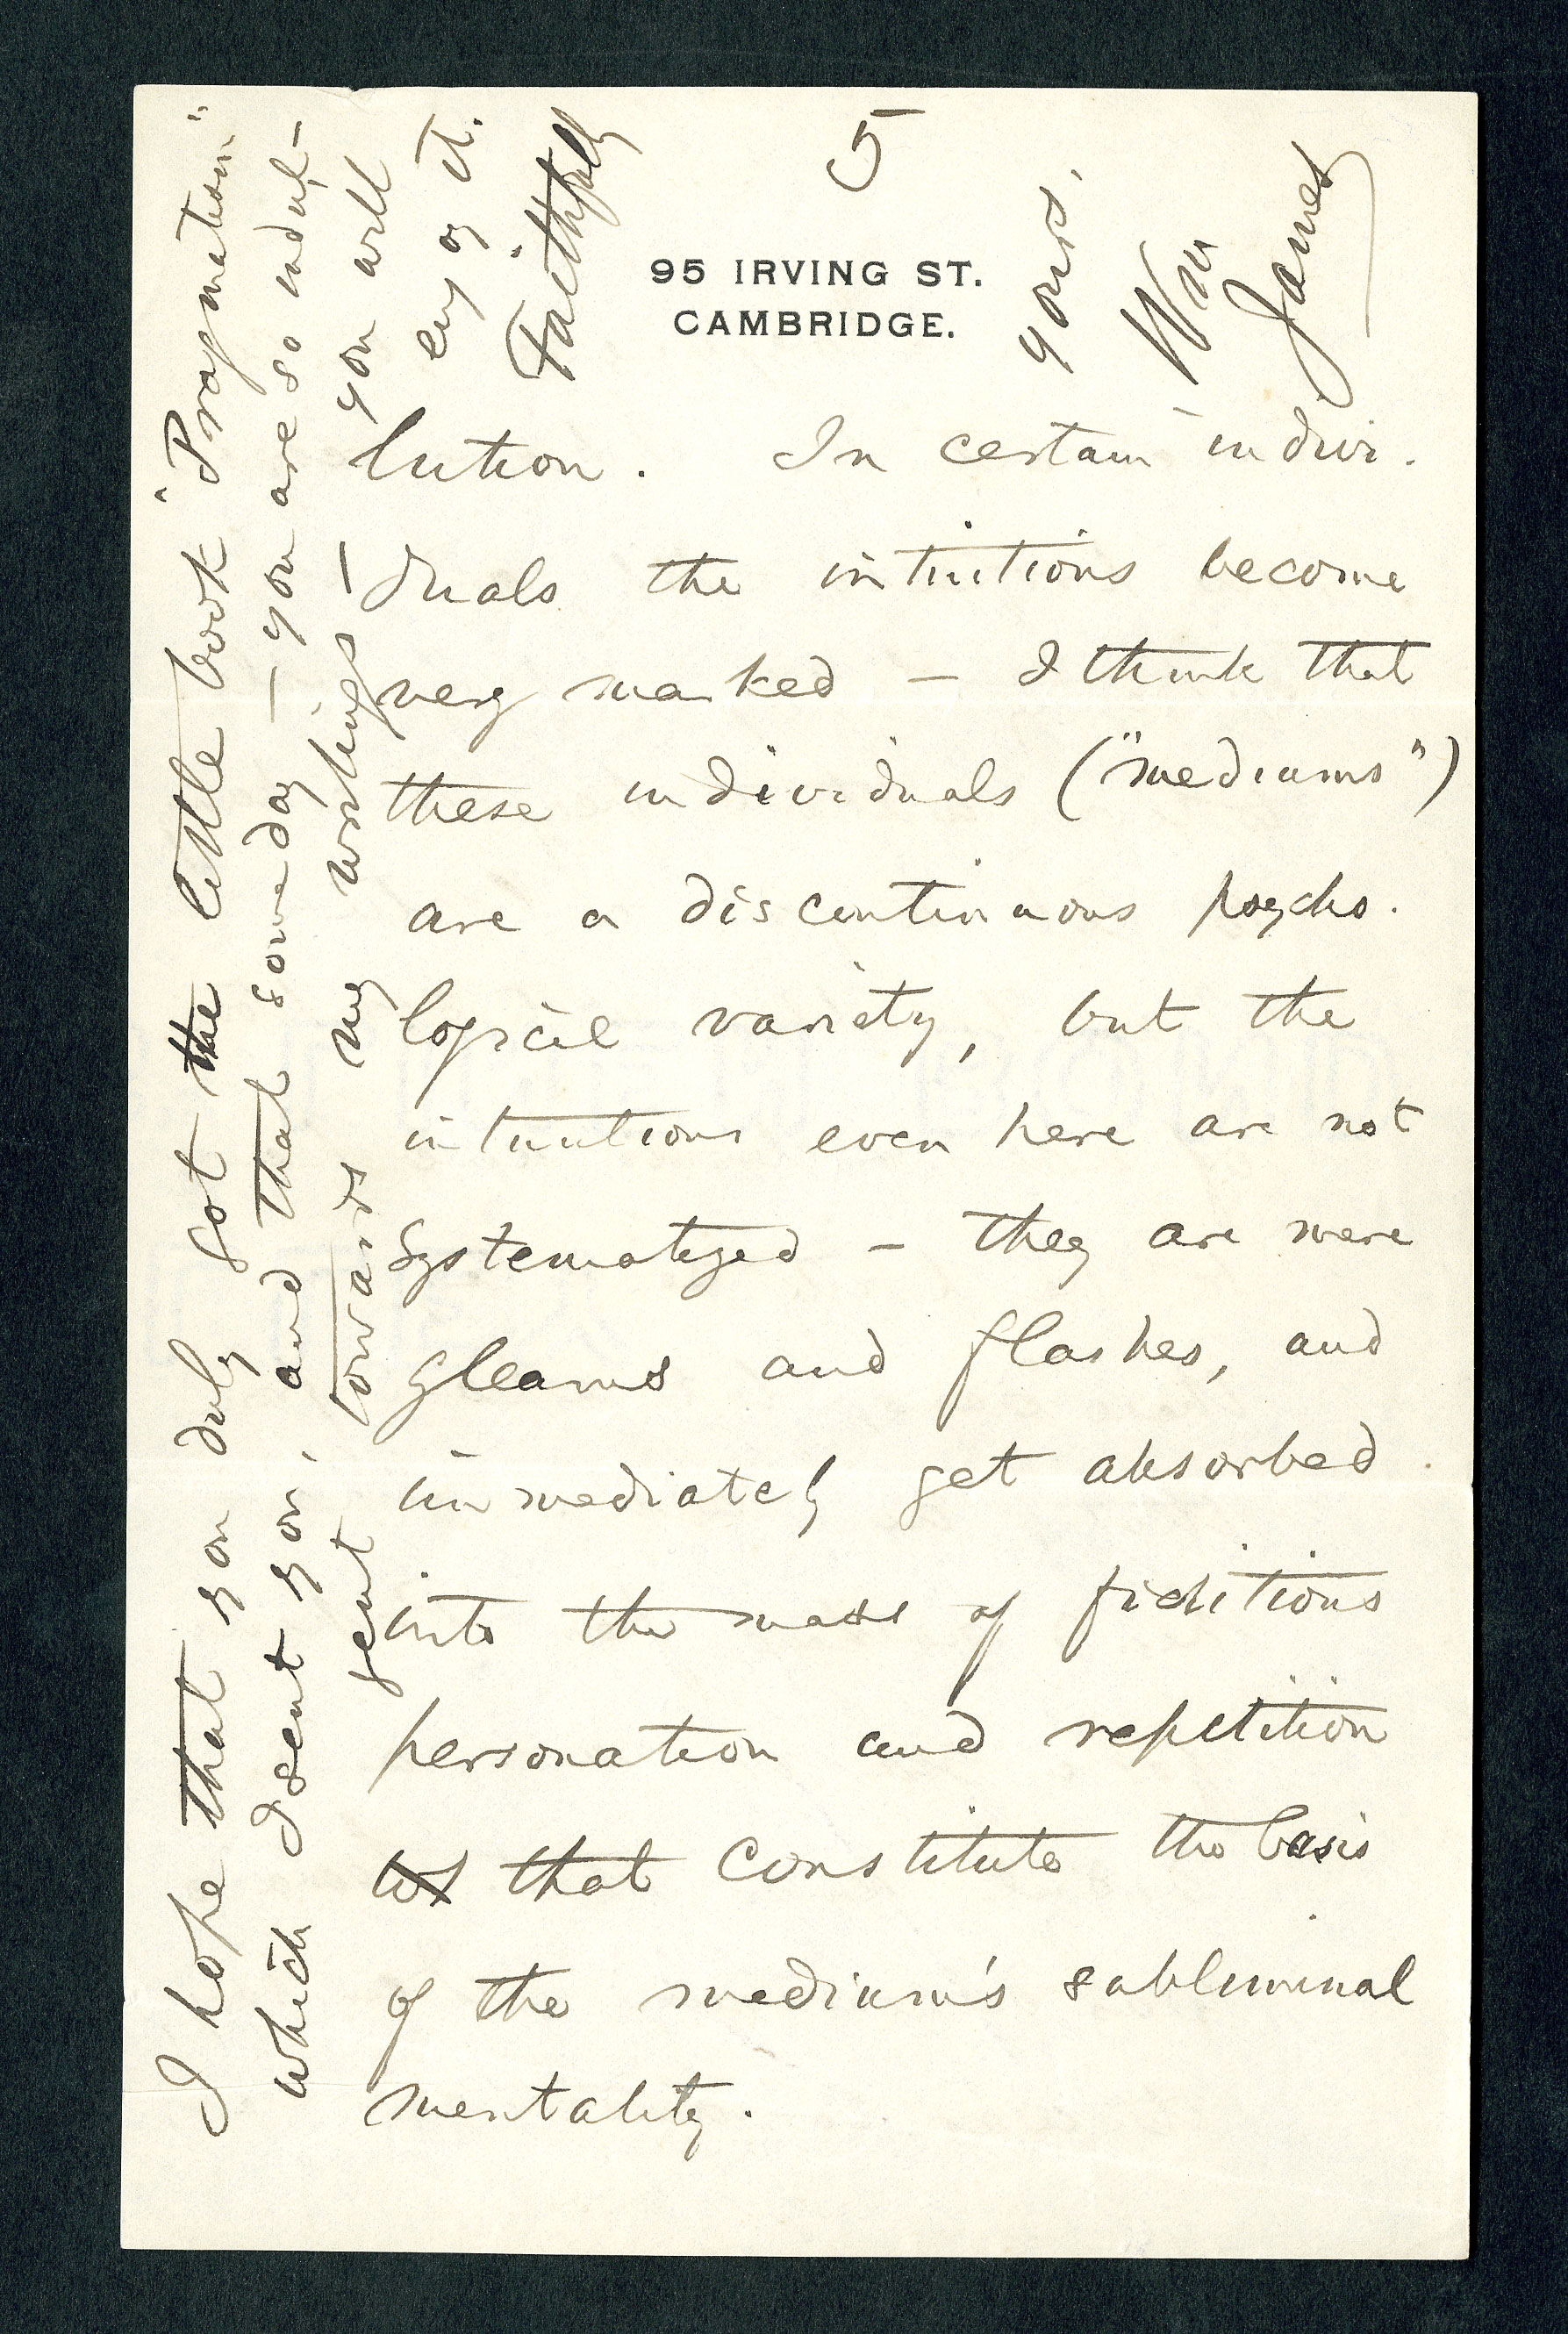 5
95 IRVING ST.
CAMBRIDGE.
lution. In certain indivi-
duals the intuitions become
very marked – I think that
these individuals ("mediums")
are a discontinuous psycho-
logical variety, but the
intuitions even here are not
systematized – they are mere
gleams and flashes, and
immediately get absorbed
into the mass of fictitious
personation and repetition
that constitute the basis
of the medium's subliminal
mentality.
I hope that you duly got the little book "Pragmatism"
which I sent you, and that some day – you are so indul-
gent towards my writings – you will
enjoy it.
Faithfully
yours,
Wm
James